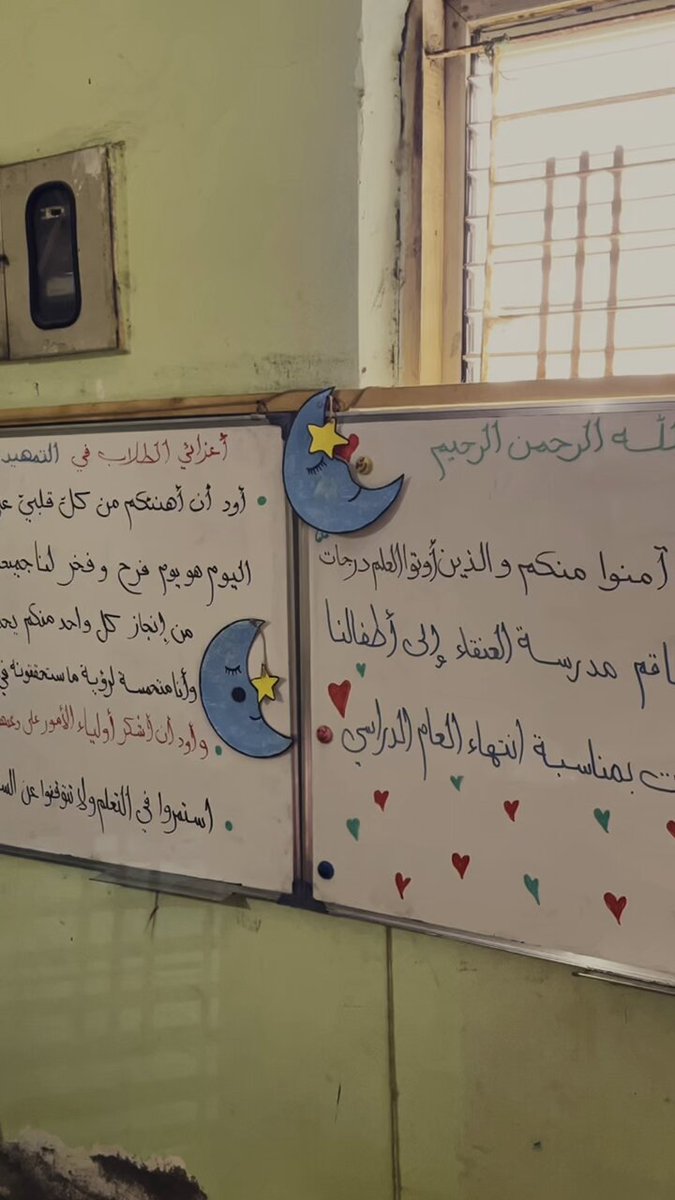 الله الرحمن الرحيم
آمنوا منكم والذين أوتوا العلم درجات
مدرسة العنقاء إلى أطفالنا
بمناسبة انتهاء العام الدراسي
أعزائي الطلاب في
أود أن أهنئكم من كلّ قلبيّ
اليوم هو يوم فرح و فخر لنا
من إنجاز كل واحد منكم
وأنا متحمسة لرؤية ما ستحققونه في
وأود أن أشكر أولياء الأمور على
استمروا في التعلم ولا تتوقفوا عن